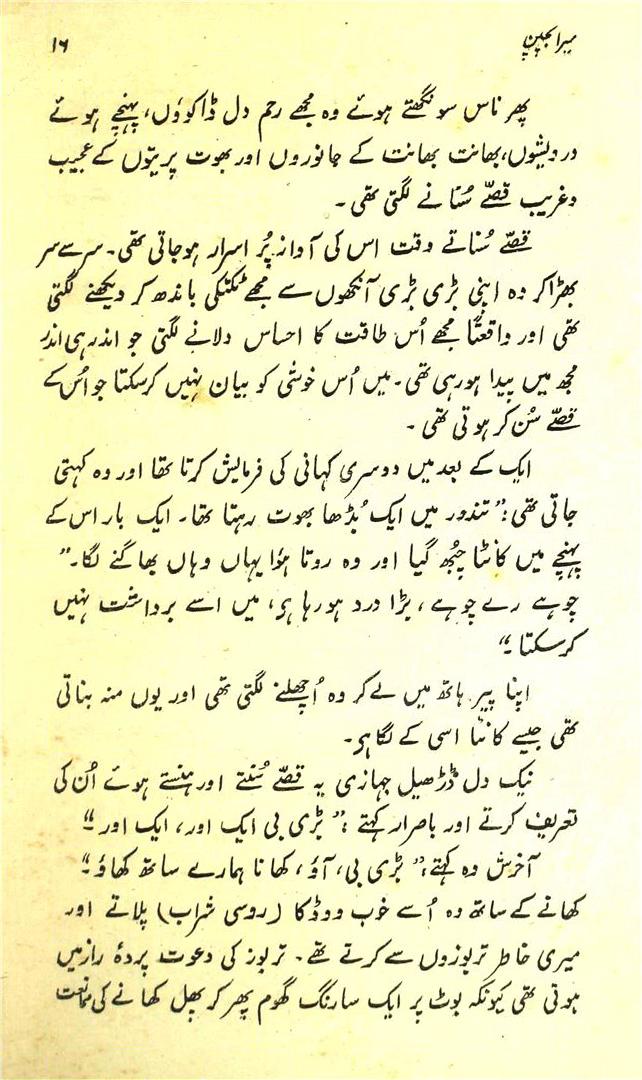 میرا بچپن
۱۶
پھر ناس سونگھتے ہوئے وہ مجھے رحم دل ڈاکوؤں، پہنچے ہوئے
درویشوں، بھانت بھانت کے جانوروں اور بھوت پریتوں کے عجیب
وغریب قصّے سُنانے لگتی تھی۔
قصّے سُناتے وقت اس کی آواز پُر اسرار ہوجاتی تھی۔ سر سے سر
بھڑا کر وہ اپنی بڑی بڑی آنکھوں سے مجھے ٹکٹکی باندھ کر دیکھنے لگتی
تھی اور واقعتاً مجھے اُس طاقت کا احساس دلانے لگتی جو اندر ہی اندر
مجھ میں پیدا ہو رہی تھی۔ میں اُس خوشی کو بیان نہیں کرسکتا جو اُس کے
قصّے سُن کر ہوتی تھی۔
ایک کے بعد میں دوسری کہانی کی فرمایش کرتا تھا اور وہ کہتی
جاتی تھی: ”تندور میں ایک بُڈھا بھوت رہتا تھا۔ ایک بار اس کے
پہنچے میں کانٹا چُبھ گیا اور وہ روتا ہؤا یہاں وہاں بھاگنے لگا۔”
چوہے رے چوہے، بڑا درد ہو رہا ہی، میں اسے برداشت نہیں
کرسکتا۔“
اپنا پیر ہاتھ میں لے کر وہ اُچھلنے لگتی تھی اور یوں منہ بناتی
تھی جیسے کانٹا اسی کے لگا ہی۔
نیک دل ڈڑھیل جہازی یہ قصّے سُنتے اور ہنستے ہوئے اُن کی
تعریف کرتے اور باصرار کہتے: ”بڑی بی ایک اور، ایک اور“
آخرش وہ کہتے: ”بڑی بی، آؤ، کھانا ہمارے ساتھ کھاؤ۔“
کھانے کے ساتھ وہ اُسے خوب ووڈکا (روسی شراب) پلاتے اور
میری خاطر تربوزوں سے کرتے تھے۔ تربوز کی دعوت پردۂ راز میں
ہوتی تھی کیونکہ بوٹ پر ایک سارنگ گھوم پھر کر پھل کھانے کی ممانعت